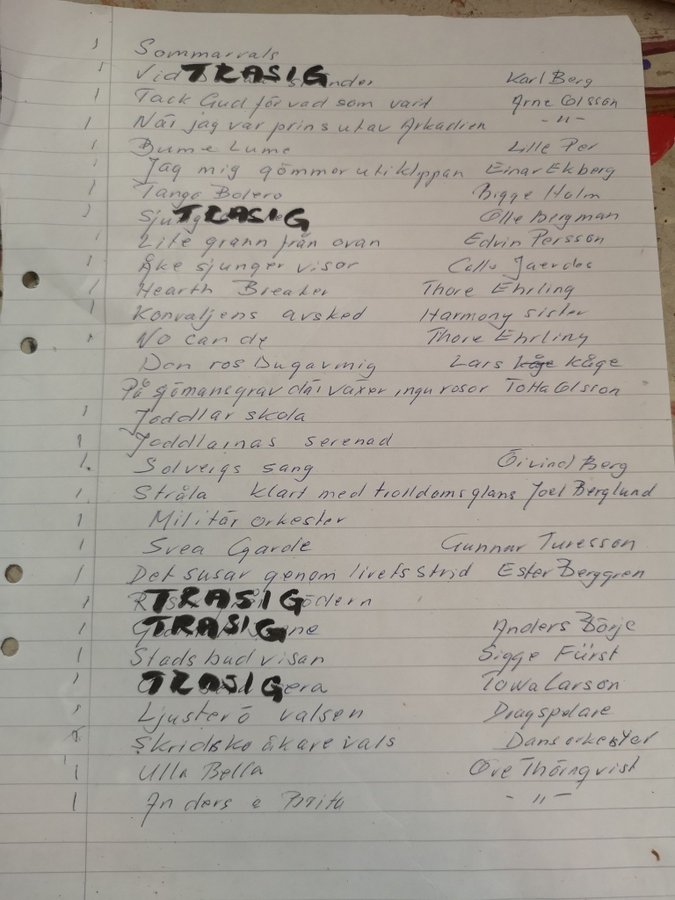 1 Sommarvals
1 Vid TRASIG Karl Berg
1 Tack Gud för vad som varit Arne Olsson
1 När jag var prins utav Arkadien -"-
1 Bume Lume Lille Per
1 Jag mig gömmer uti klippan Einar Ekberg
1 Tango Bolero Bigge Holm
1 Sjung TRASIG Olle Bergman
1 Lite grann från ovan Edvin Persson
1 Åke sjunger visor
1 Hearth Breaker Thore Ehrling
1 Konvaljens avsked Harmony sister
1 No can de Thore Ehrling
Den ros Lars kåge kåge
På sjömansgrav där växer inga rosor Totta Olsson
1 Joddlar skola
1 Joddlarnas serenad
1. Solveigs sang Öivind Berg
1. Stråla klart med trolldomsglans Joel Berglund
1 Militär orkester
1 Svea Garde Gunnar Turesson
1 Det susar genom livets strid Ester Berggren
1 TRASIG ödern
1 TRASIG ne Anders Börje
1 Stadsbudvisan Sigge Fürst
1 TRASIG era Towa Larson
1 Ljusterö valsen Dragspelare
Skridskoåkarevals Dansorkester
1 Ulla Bella Ove Thörnqvist
1 Anders e Brita -"-